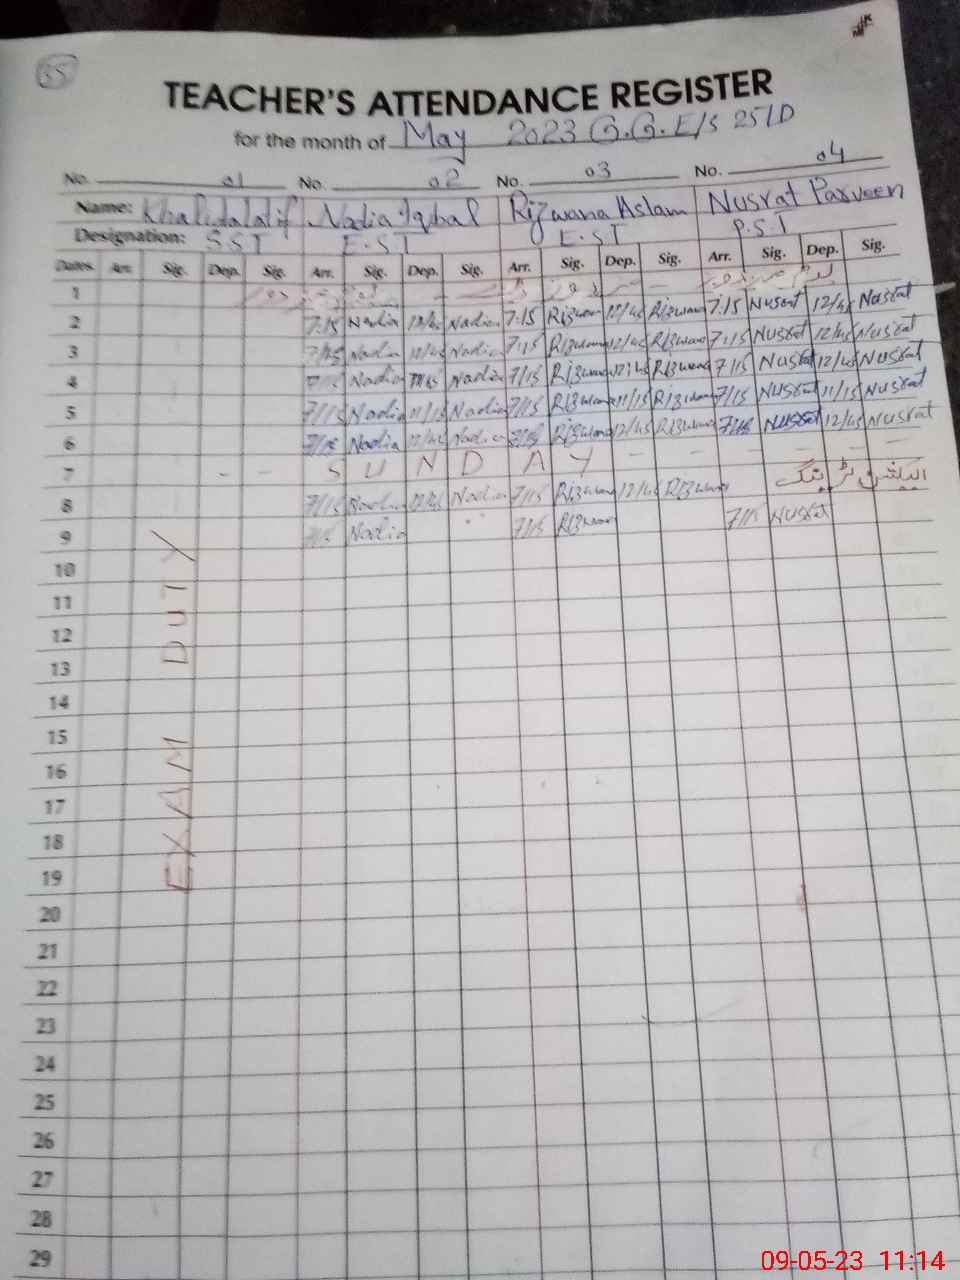 35
TEACHER'S ATTENDANCE REGISTER
for the month of May 2023 G.G.E/S 25/D
No. 01 No. 02 No. 03 No. 04
Name: Khalidalatif Nadia Iqbal Rizwana Aslam Nusrat Parveen
Designation: S.S.T E.S.T E.S.T P.S.T
Dates Arr. Sig. Dep. Sig. Arr. Sig. Dep. Sig. Arr. Sig. Dep. Sig. Arr. Sig. Dep. Sig.
1
2 7:15 Nadia 12/45 Nadia 7:15 Rizwana 12/45 Rizwana 7:15 Nusrat 12/45 Nusrat
3 7/15 Nadia 12/45 Nadia 7:15 Rizwana 12/45 Rizwana 7:15 Nusrat 12/45 Nusrat
4 7/15 Nadia Nadia 7/15 Rizwana 12/45 Rizwana 7/15 Nusrat 12/45 Nusrat
5 7/15 Nadia 11/15 Nadia 7/15 Rizwana 11/15 Rizwana 7/15 Nusrat 11/15 Nusrat
6 7/15 Nadia 12/45 Nadia 7/15 Rizwana 12/45 Rizwana 7/15 Nusrat 12/45 Nusrat
7 - - S U N D A Y - - - - - - -
8 7/15 Nadia 12/45 Nadia 7/15 Rizwana 12/45 Rizwana الیکشن ٹریننگ
9 7/15 Nadia 7/15 Rizwana 7/15 Nusrat
10
11
12
13
14
15
16
17
18
19
20
21
22
23
24
25
26
27
28
29
EXAM DUTY
09-05-23 11:14